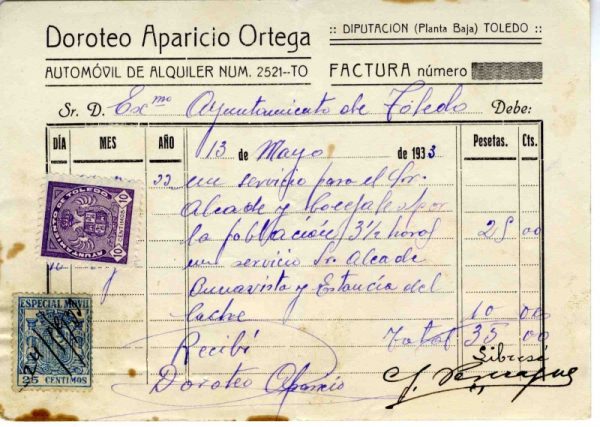 Doroteo Aparicio Ortega
:: DIPUTACION (Planta Baja) TOLEDO ::
AUTOMÓVIL DE ALQUILER NUM. 2521--TO
FACTURA número
Sr. D. Exmo Ayuntamiento de Toledo Debe:
DÍA MES AÑO Pesetas. Cts.
13 de Mayo de 1933
un servicio para el Sr.
Alcade y Cocejales por
la població́n 3½ horas 25 00
un servicio Sr. Alcade
Bunavista y Estancia del
coche 10 00
Total 35 00
Recibí
Doroteo Aparicio
AYUNTAMIENTO DE TOLEDO
10 CENTIMOS 10
ESPECIAL MÓVIL
25 CENTIMOS